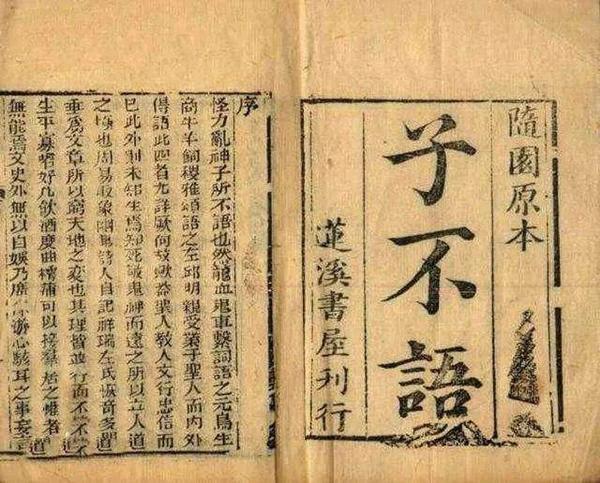 隨園原本
子不語
蓮溪書屋刋行
序
怪力亂神子所不語也然龍血鬼車繫詞語之元鳥生
商牛羊飼稷雅頌語之左邱明親受業于聖人而内外
傳語此四者尤詳厥何故歟蓋聖人教人文行忠信而
已此外則未知生焉知死敬鬼神而遠之所以立人道
之極也周易取象幽詩人自記祥瑞左氏恢奇多
垂爲文章所以窮天地之變也其理皆並行而不
生平寡嗜好凡飲酒度曲樗蒱可以接羣居之懽者
無能焉文史外無以自娛乃廣游心駭耳之事妄言